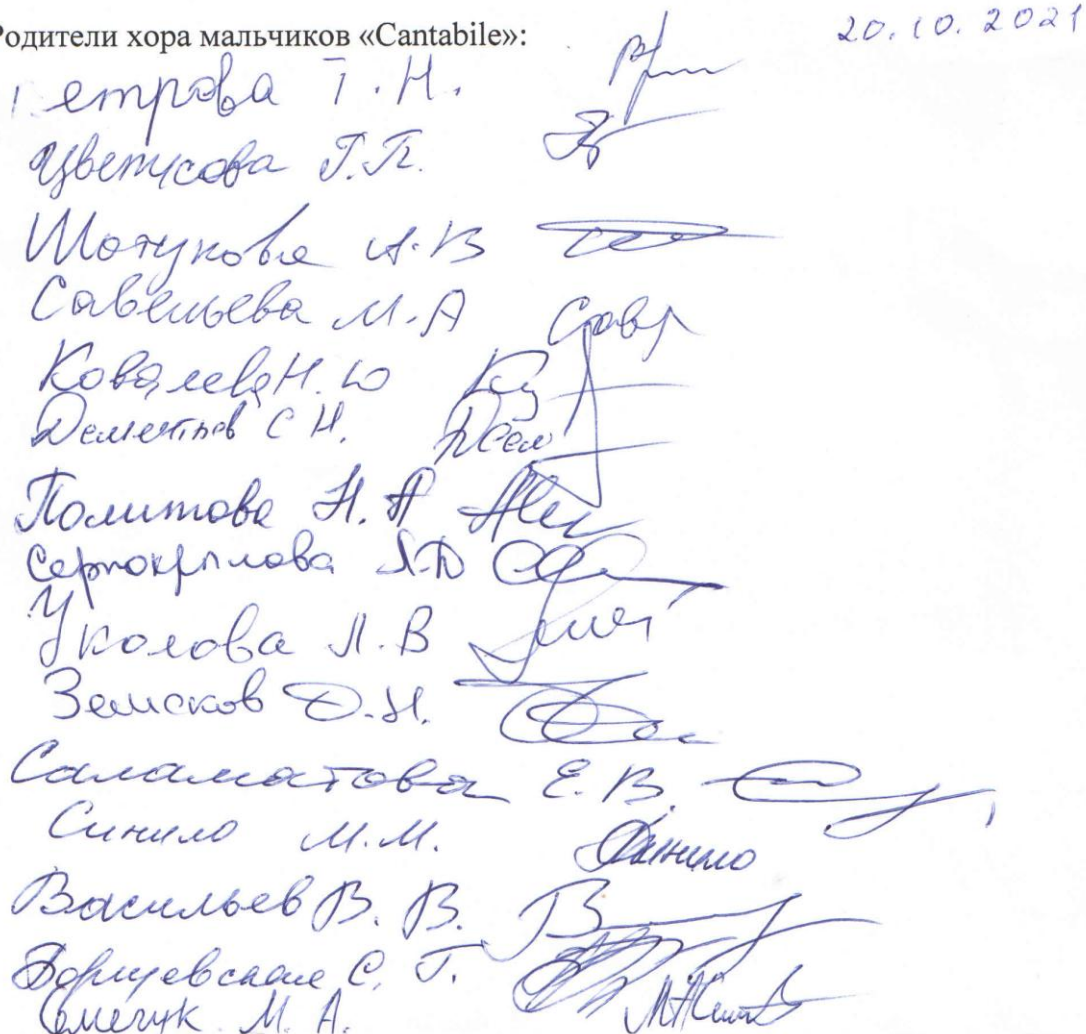 Родители хора мальчиков «Cantabile»: 20.10.2021
Петрова Т. Н.
Цветкова Г.П.
Шотукова А.В
Савельева М.А Сав
Ковалева Н.Ю
Дементьев С Н. Дем
Политова Н.А
Сернокрылова Л.В
Уколова Л.В
Земсков Д.Н.
Саламатова Е.В.
Синило М.М. Синило
Васильев В. В.
Борщевская С. Г.
М. А.